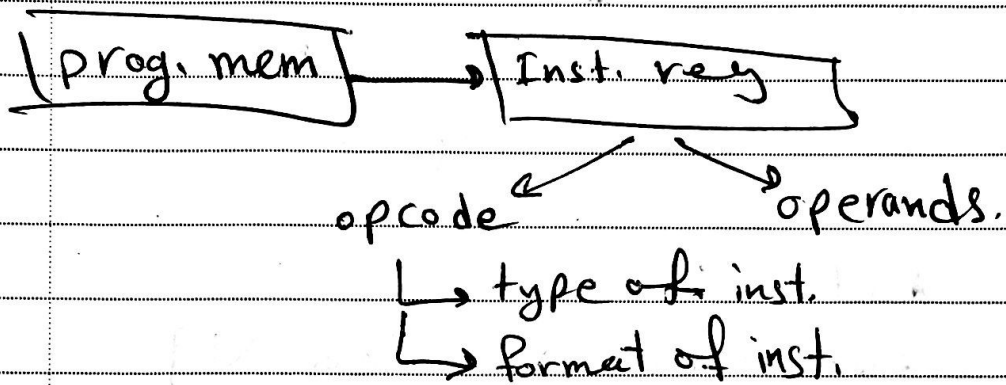 prog. mem Inst. reg
opcode operands.
type of inst.
format of inst.